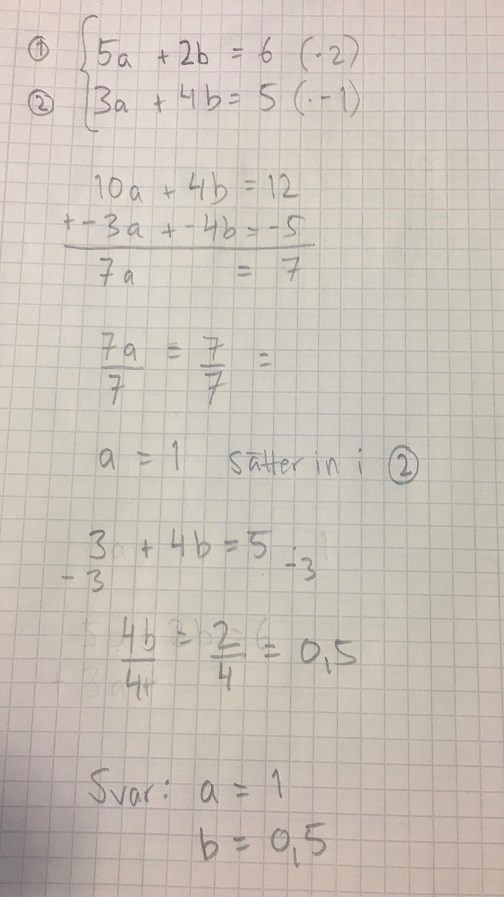 ① 5a + 2b = 6 (·2)
② 3a + 4b = 5 (·-1)
10a + 4b = 12
+ -3a + -4b = -5
7a = 7
7a/7 = 7/7 =
a = 1 sätter in i ②
3 + 4b = 5 -3
-3
4b/4 = 2/4 = 0,5
Svar: a = 1
b = 0,5